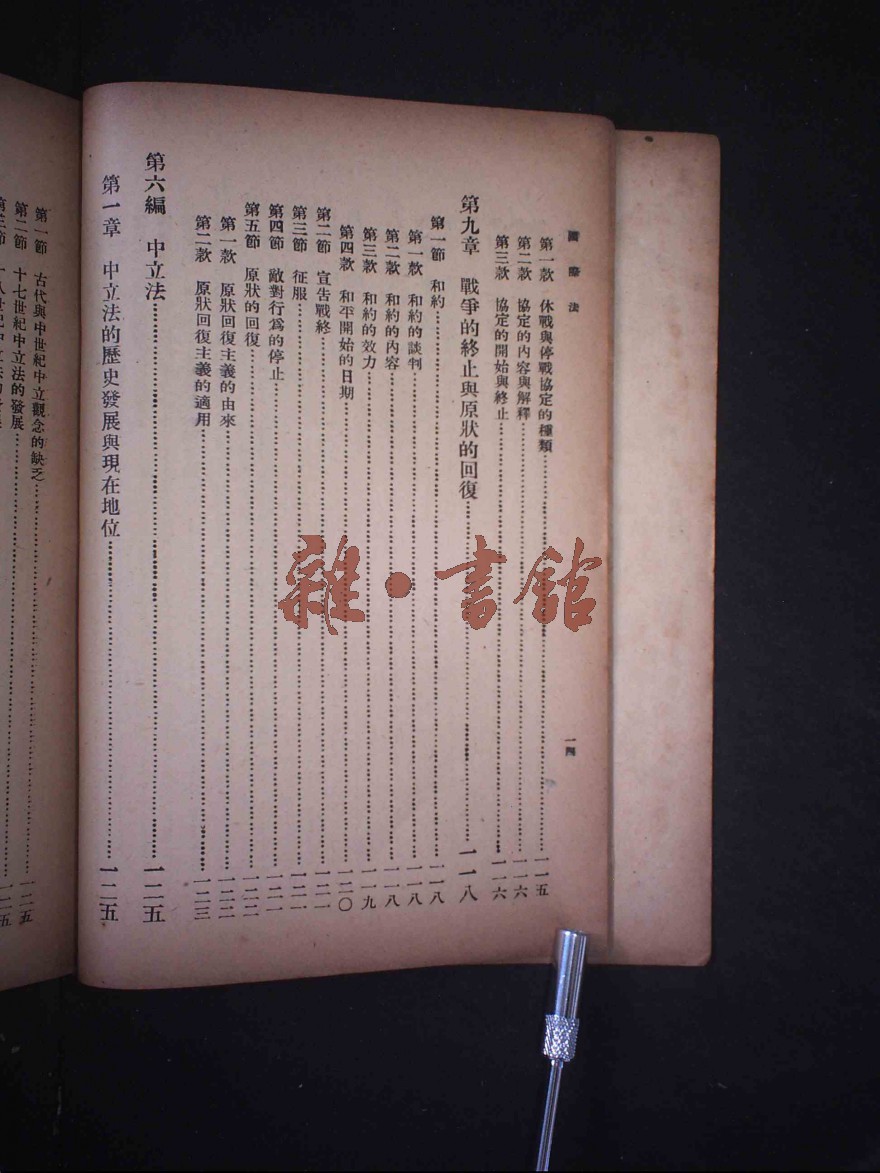 國際法
一四
第一款　休戰與停戰協定的種類……一一五
第二款　協定的內容與解釋……一一六
第三款　協定的開始與終止……一一六
第九章　戰爭的終止與原狀的回復……一一八
第一節　和約……一一八
第一款　和約的談判……一一八
第二款　和約的內容……一一八
第三款　和約的效力……一一九
第四款　和平開始的日期……一二〇
第二節　宣告戰終……一二一
第三節　征服……一二一
第四節　敵對行爲的停止……一二一
第五節　原狀的回復……一二二
第一款　原狀回復主義的由來……一二二
第二款　原狀回復主義的適用……一二三
第六編　中立法……一二五
第一章　中立法的歷史發展與現在地位……一二五
第一節　古代與中世紀中立觀念的缺乏……一二五
第二節　十七世紀中立法的發展……一二五
雜·書館